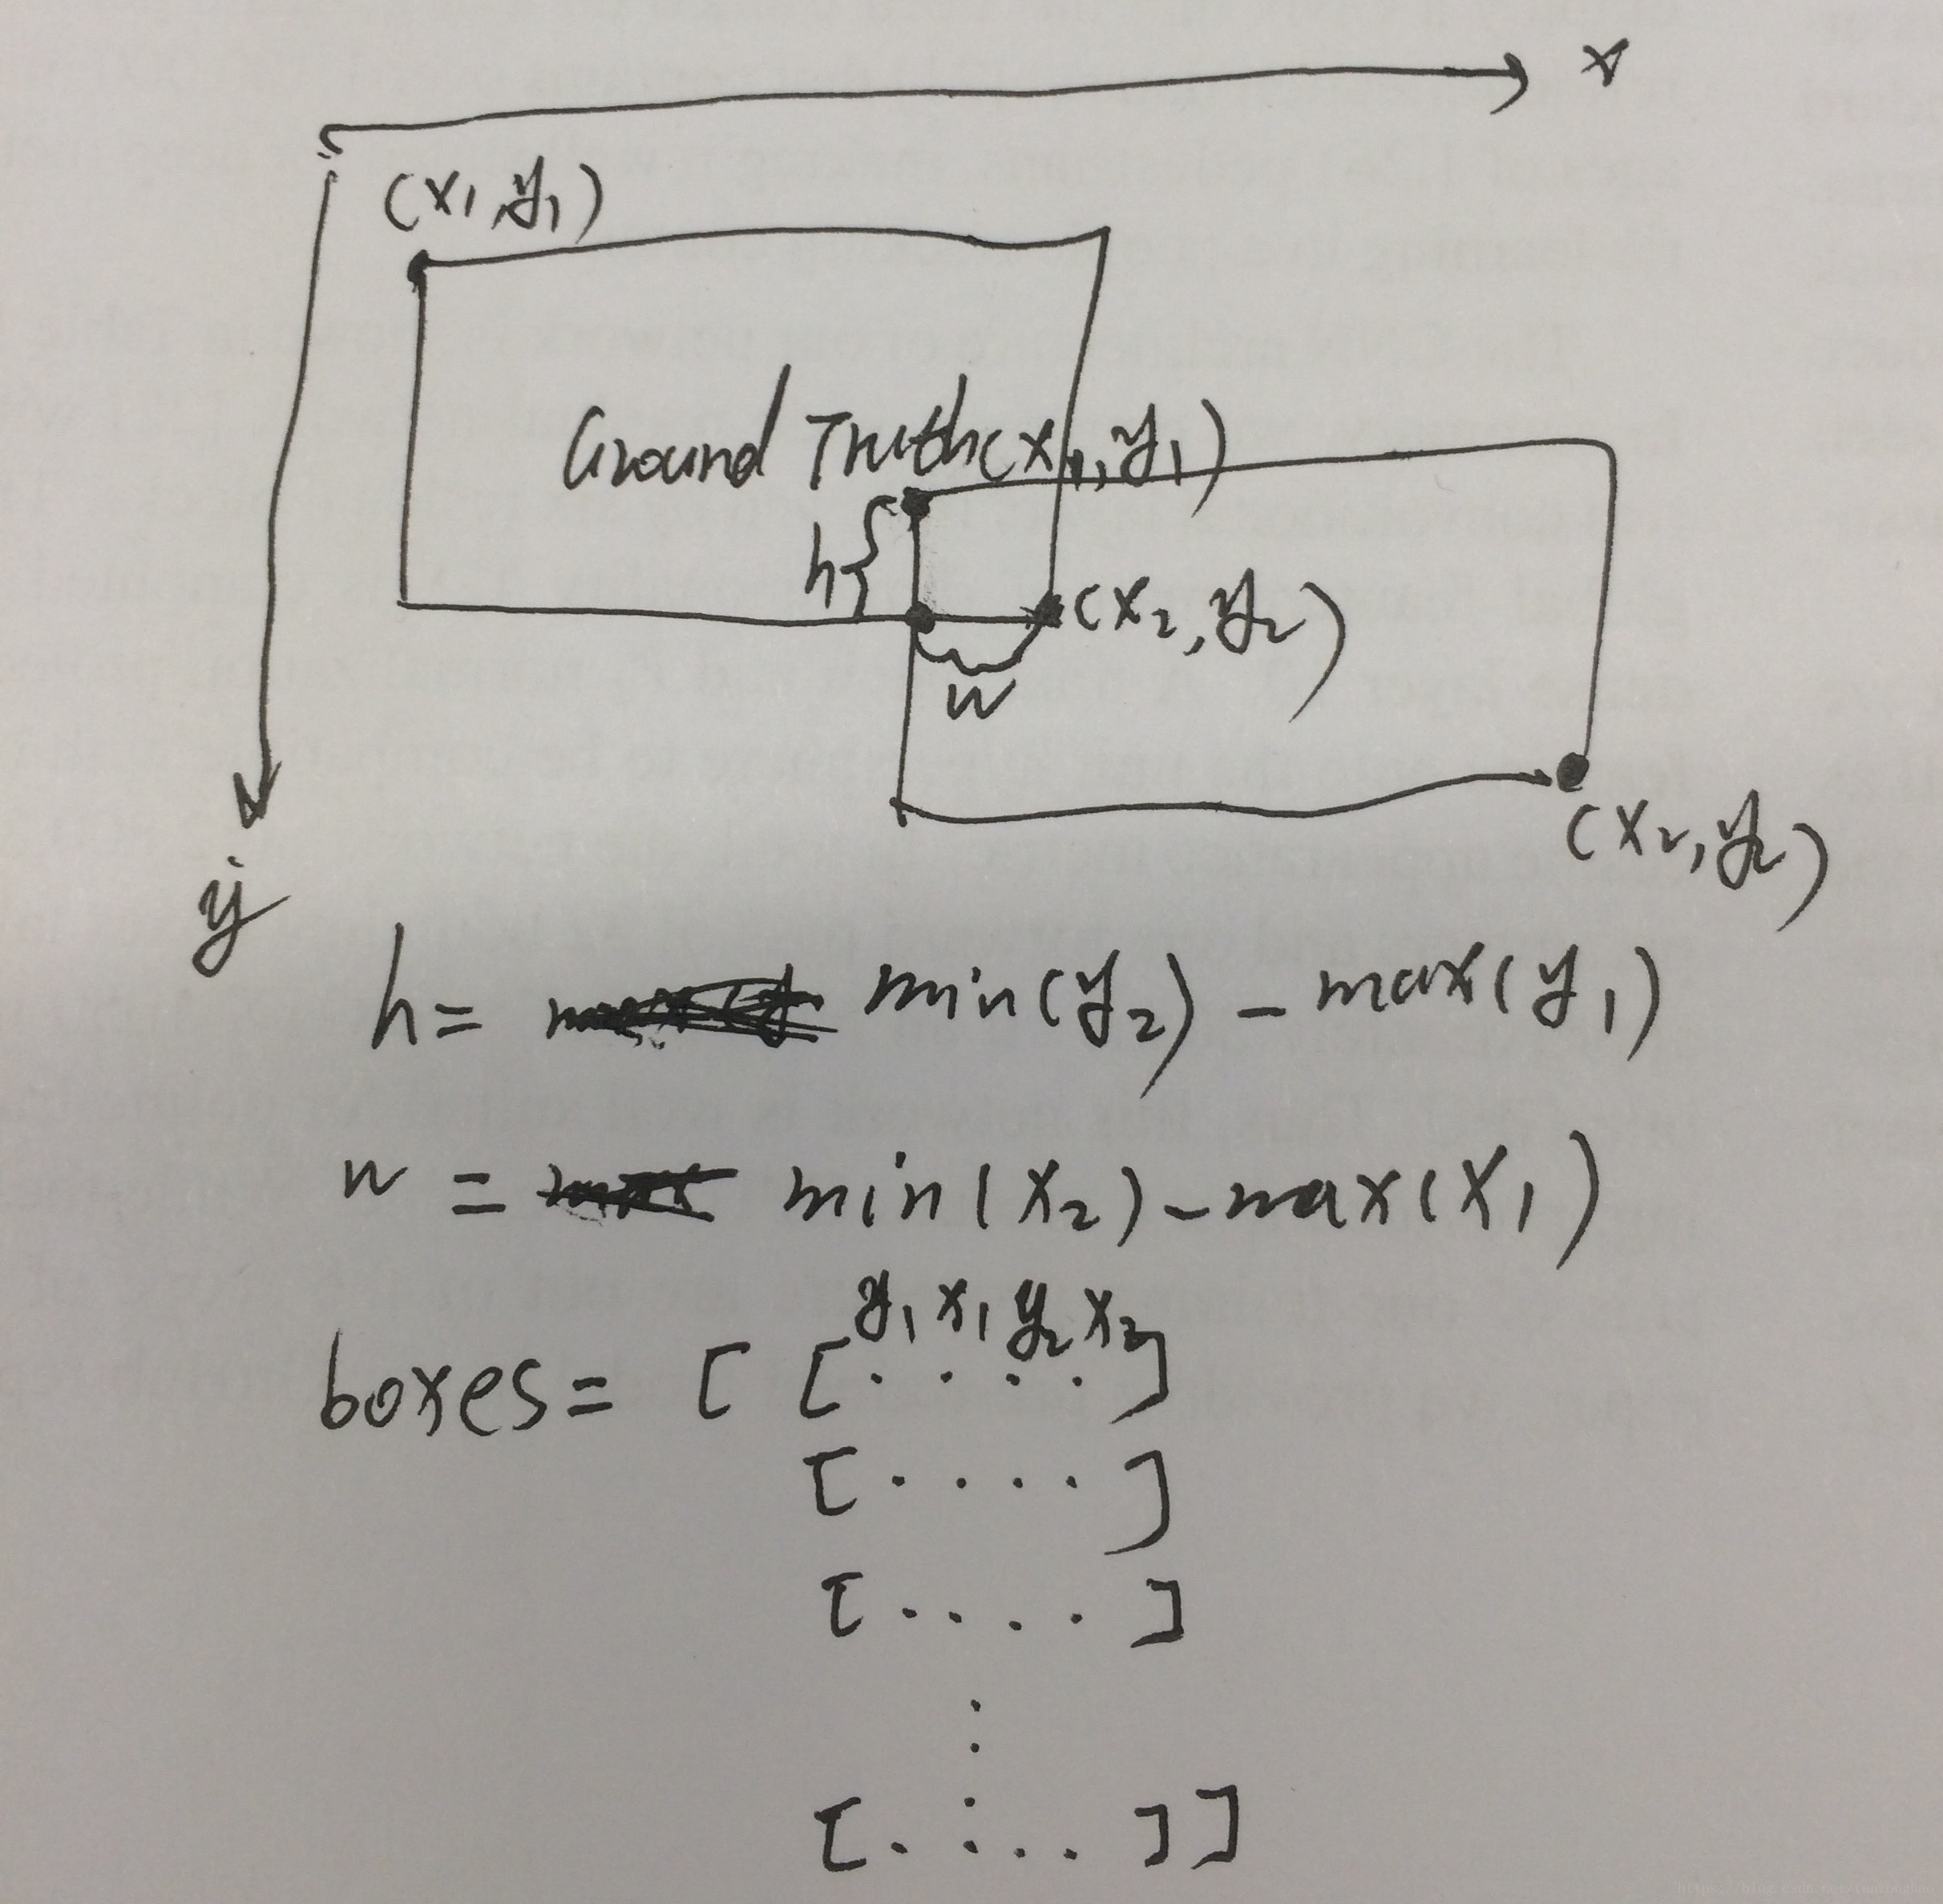 x
(x₁,y₁)
Ground Truth (x₁,y₁)
h
(x₂,y₂)
w
(x₂,y₂)
y
h = min(y₂) - max(y₁)
w = min(x₂) - max(x₁)
y₁ x₁ y₂ x₂
boxes = [ [ . . . . ]
[ . . . . ]
[ . . . . ]
.
.
.
[ . . . . ] ]